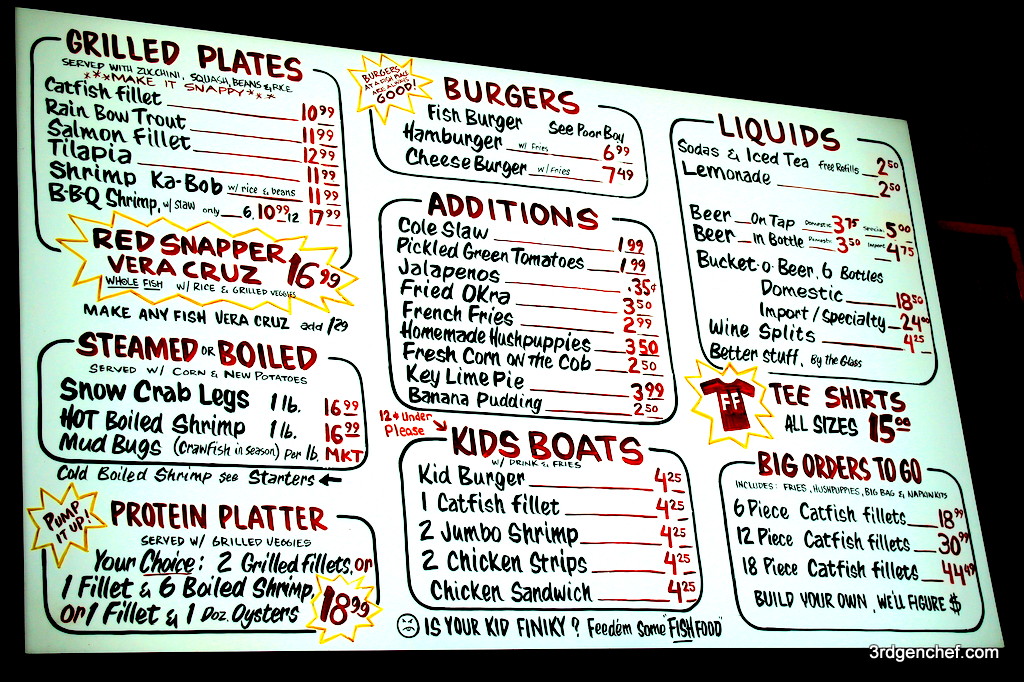 GRILLED PLATES
SERVED WITH ZUCCHINI, SQUASH, BEANS & RICE
***MAKE IT SNAPPY***
Catfish fillet 10.99
Rain Bow Trout 11.99
Salmon Fillet 12.99
Tilapia 11.99
Shrimp Ka-Bob w/ rice & beans 11.99
B-B-Q Shrimp, w/ slaw only 6 10.99 12 17.99
RED SNAPPER
VERA CRUZ 16.99
WHOLE FISH w/ RICE & GRILLED VEGGIES
MAKE ANY FISH VERA CRUZ add 1/29
STEAMED OR BOILED
SERVED W/ CORN & NEW POTATOES
Snow Crab Legs 1 lb. 16.99
HOT Boiled Shrimp 1 lb. 16.99
Mud Bugs (Crawfish in season) Per lb. MKT
Cold Boiled Shrimp see Starters ←
PUMP
IT UP!
PROTEIN PLATTER
SERVED W/ GRILLED VEGGIES
Your Choice: 2 Grilled fillets, or
1 Fillet & 6 Boiled Shrimp,
or 1 Fillet & 1 Doz. Oysters 18.99
BURGERS
AT A FISH PLACE
ARE ALWAYS
GOOD!
BURGERS
Fish Burger See Poor Boy
Hamburger w/ fries 6.99
Cheese Burger w/ fries 7.49
ADDITIONS
Cole Slaw 1.99
Pickled Green Tomatoes 1.99
Jalapenos .35¢
Fried Okra 3.50
French Fries 2.99
Homemade Hushpuppies 3.50
Fresh Corn on The Cob 2.50
Key Lime Pie 3.99
Banana Pudding 2.50
12 & Under
Please
KIDS BOATS
W/ DRINK & FRIES
Kid Burger 4.25
1 Catfish fillet 4.25
2 Jumbo Shrimp 4.25
2 Chicken Strips 4.25
Chicken Sandwich 4.25
IS YOUR KID FINIKY? Feedem Some "FISH FOOD"
LIQUIDS
Sodas & Iced Tea free Refills 2.50
Lemonade 2.50
Beer On Tap Domestic 3.75 Special 5.00
Beer in Bottle Domestic 3.50 Import 4.75
Bucket-o-Beer, 6 Bottles
Domestic 18.50
Import/specialty 24.00
Wine Splits 4.25
Better stuff, By the Glass
FF
TEE SHIRTS
ALL SIZES 15.00
BIG ORDERS TO GO
INCLUDES: FRIES, HUSHPUPPIES, BIG BAG & NAPKIN KITS
6 Piece Catfish fillets 18.99
12 Piece Catfish fillets 30.99
18 Piece Catfish fillets 44.49
BUILD YOUR OWN, WE'LL FIGURE $
3rdgenchef.com